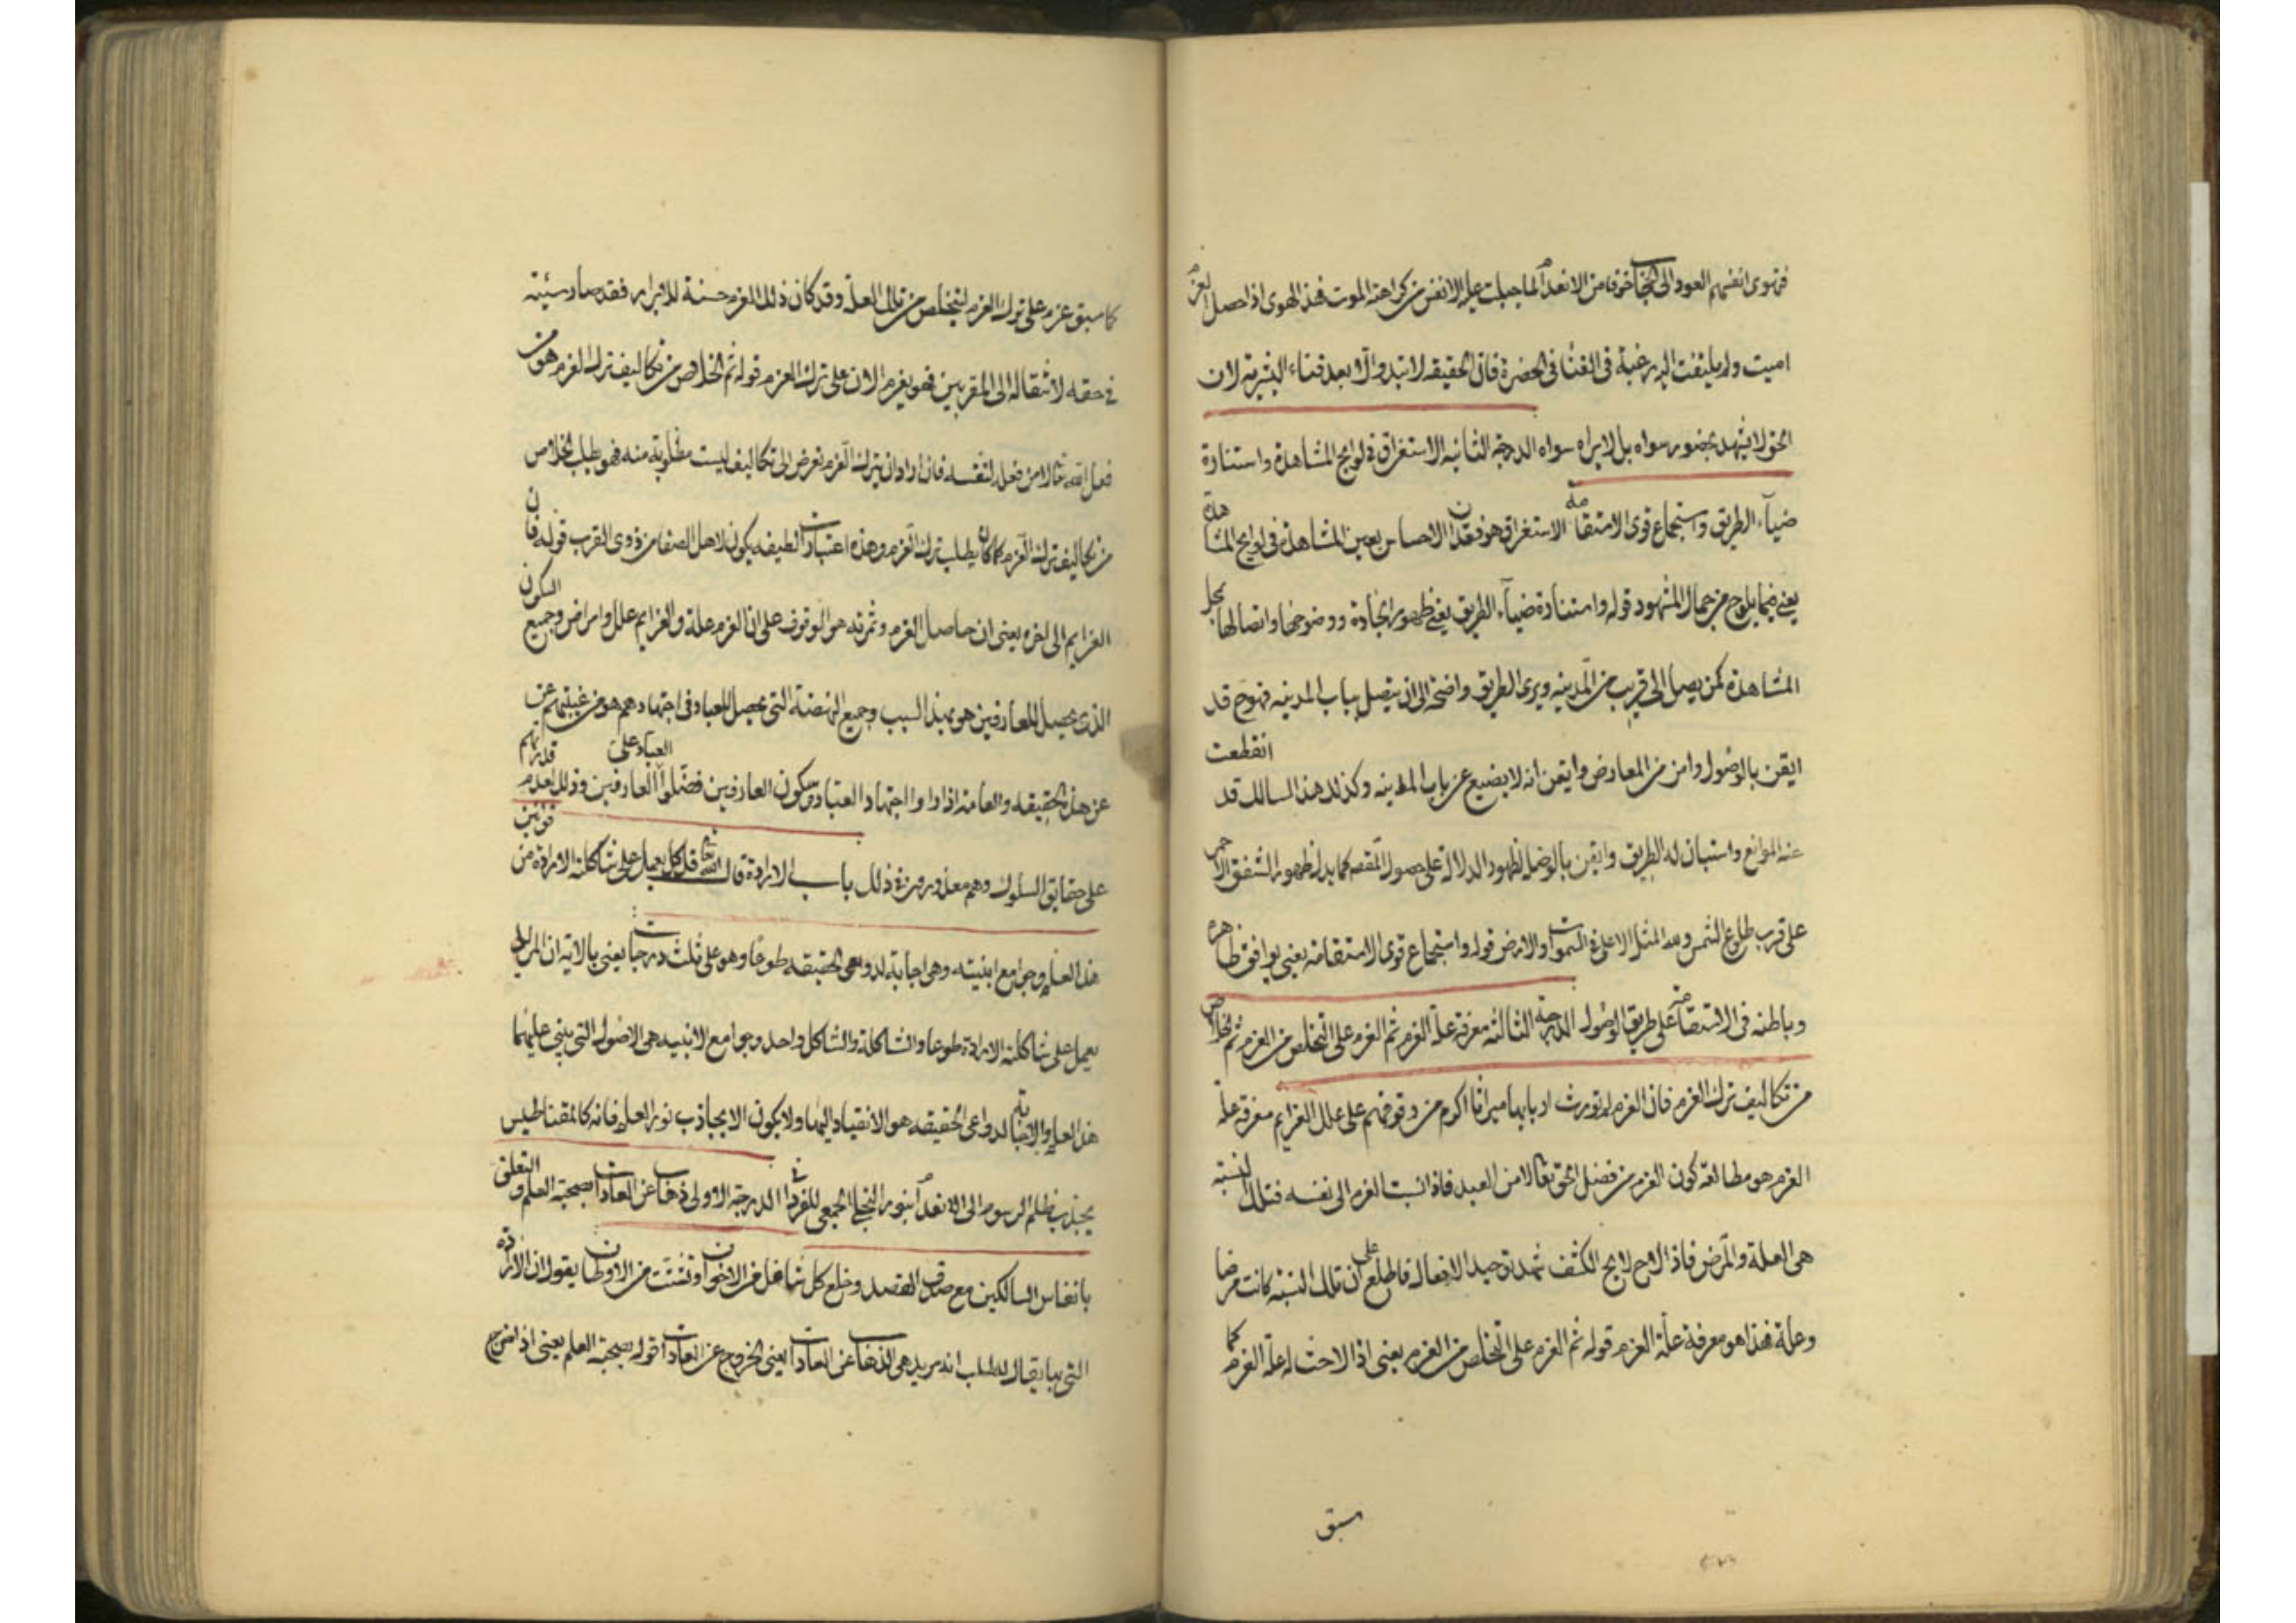 فتهوى انفسهم العود الى الحجاب خوفا من الانعدام لما جبلت عليه الانفس من كراهته الموت فهذا الهوى اذا حصل العزم
اميت ولم يلتفت اليه رغبة فى الفنا فى الحضرة فان الحقيقه لا تبدو الا بعد فناء البشرية لان
الحق لا يشهد بحضور سواه بل لا يراه سواه الدرجة الثانيه الاستغراق فى لوايح المشاهدة واستنارة
ضياء الطريق واستجماع قوى الاستقامه الاستغراق هو فقدان الاحساس بعين المشاهدة فى لوايح المشاهدة
يعنى فيما يلوح من جمال المشهود قوله واستنارة ضياء الطريق يعنى ظهور الجادة ووضوحها واتصالها بمحل
المشاهدة كمن يصل الى قريب من المدينه ويرى الطريق واضحة الى ان يتصل بباب المدينه فهو ح قد
ايقن بالوصول وامن من المعارض وايقن انه لا يضيع عن باب المدينه وكذلك هذا السالك قد انقطعت
عنه الموانع واستبان له الطريق وايقن بالوصل لظهور الدلالة على حصول المقصد كما يدل ظهور الشفق الاحمر
على قرب طلوع الشمس ولله المثل الاعلى فى السموات والارض قوله واستجماع قوى الاستقامة يعنى يوافق ظاهره
وباطنه فى الاستقامة على طريق الوصول الدرجة الثالثه معرفة علة العزم ثم العزم على التخلص من العزم ثم الخلاص
من تكاليف ترك العزم فان العزم لم تورث اربابها ميراثا اكرم من وقوفهم على علل العزايم معرفة علة
العزم هو مطالعة كون العزم من فضل الحق تعالى لا من العبد فاذا نسبت العزم الى نفسه فتلك النسبة
هى العلة والمرض فاذا لاح لايح الكشف شهد توحيد الافعال فاطلع على ان تلك النسبة كانت مرضا
وعلة فهذا هو معرفة علة العزم قوله ثم العزم على التخلص من العزم يعنى اذا لاحت له علة العزم كما
سبق
كما سبق عزم على ترك العزم ليتخلص من تلك العلة وقد كان ذلك العزم حسنة للابرار فقد صار سيئة
فى حقه لانتقاله الى المقربين فهو يعزم الان على ترك العزم قوله ثم الخلاص من تكاليف ترك العزم هو من
فعل الله تعالى لا من فعله لنفسه فان اراد ان يترك العزم تعرض الى تكاليف ليست مطلوبة منه فهو يطلب الخلاص
من تكاليف ترك العزم كما كان يطلب ترك العزم وهذه اعتبارات لطيفه يكون لاهل الصفا من ذوى القرب قوله فان
العزايم الى اخره يعنى ان حاصل العزم وثمرته هو الوقوف على ان العزم علة والعزايم علل وامراض وجميع السكون
الذى يحصل للعارفين هو بهذا السبب وجميع النهضة التى تحصل للعباد فى اجتهادهم هو من غيبتهم عن
عن هذه الحقيقه والعامة اذا راوا اجتهاد العباد وسكون العارفين فضلوا العباد على العارفين وذلك لعدم قدرتهم
على حقايق السلوك وهم معذورون فى ذلك باب الارادة قال الله تعالى قل كل يعمل على شاكلته الارادة من قوانين
هذا العلم وجوامع ابنيته وهى اجابة لدواعى الحقيقه طوعا وهو على ثلث درجات يعنى بالاية ان المريد
يعمل على شاكلته الارادة طوعا والشاكلة والشاكل واحد وجوامع الابنيه هى الاصول التى يبنى عليها
هذا العلم والاجابة لدواعى الحقيقه هو الانقياد اليها ولا يكون الا بجاذب نور العلم فانه كالمقناطيس
يجذب ظلم الرسوم الى الانعدام بنور التجلى الجمعى للفرد الدرجة الاولى ذهاب عن العادات بصحبة العلم والتعلق
بانفاس السالكين مع صدق القصد وخلع كل شاغل من الاخوان وتشتت من الاوطان يقول ان الارادة
التى بها يقال للطالب انه مريد هى الذهاب عن العادات يعنى الخروج عن العادات قوله بصحبة العلم يعنى اذا خرج